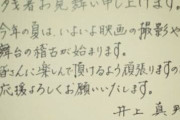 暑お見舞い申し上げます。
今年の夏は、いよいよ映画の撮影や
舞台の稽古が始まります。
皆さんに楽しんで頂けるよう頑張りますので
応援よろしくお願いいたします。
井上真